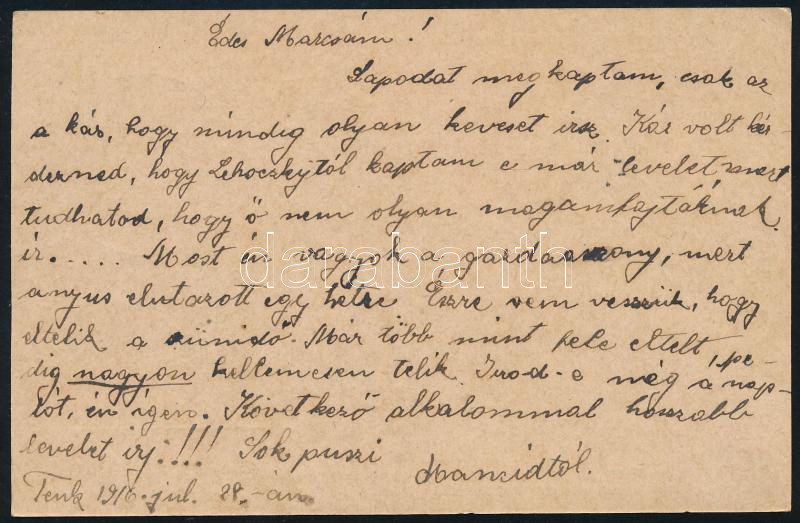 Édes Marcsám!
Lapodat megkaptam, csak az
a kár, hogy mindig olyan keveset irsz. Kár volt kér-
dezned, hogy Lehoczkytól kaptam e már levelet mert
tudhatod, hogy ő nem olyan magamfajtáknak
ir..... Most én vagyok a gazdaasszony, mert
anyus elutazott egy hétre Észre sem veszszük, hogy
eltelik a szünidő Már több mint fele eltelt, pe-
dig nagyon kellemesen telik. Irod-e még a nap-
lót, én igen. Következő alkalommal hosszabb
levelet irj!!!! Sok puszi
Mancidtól.
Tenk 1916. jul. 28.-án
darabanth